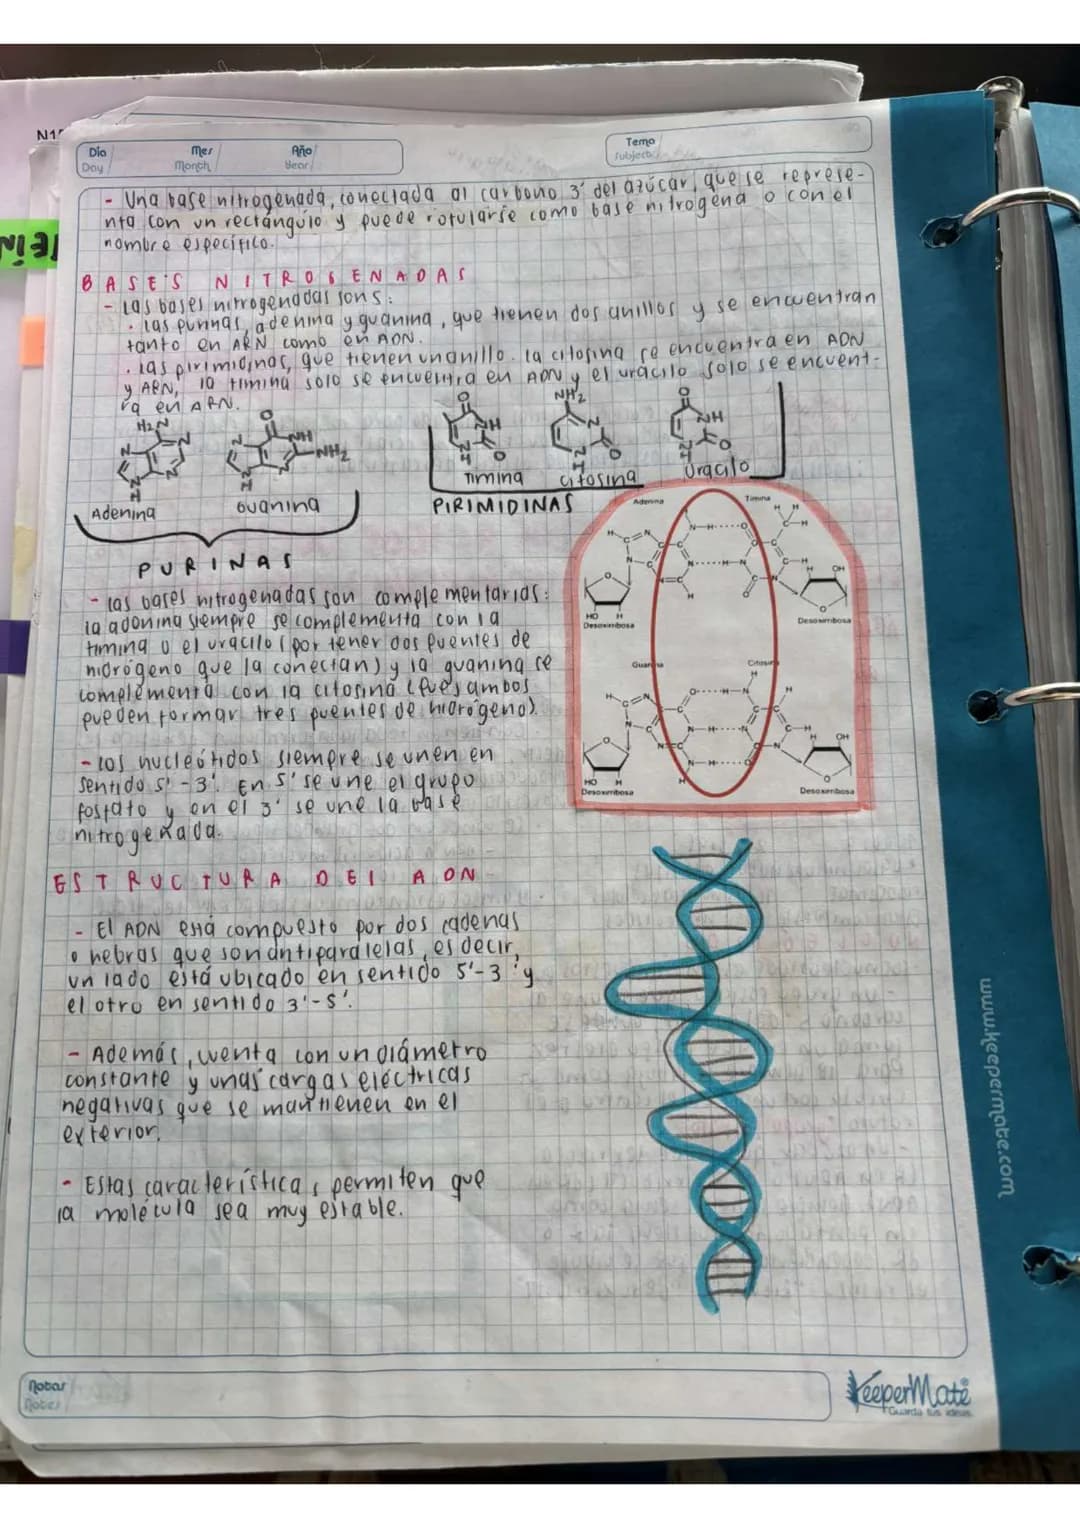 N1
Día
Day
Mes
Month
Año
Year
Tema
Subject
- Una base nitrogenada, conectada al carbono 3' del azúcar, que se represe-
nta con un rectángulo y puede rotularse como base nitrógena o con el
nombre específico.
BASES NITROGENADAS
- Las bases nitrogenadas sons:
· las purinas, adenina y guanina, que tienen dos anillos y se encuentran
tanto en ARN como en ADN.
· las pirimidinas, que tienen un anillo. la citosina se encuentra en ADN
y ARN, la timina solo se encuentra en ADN y el uracilo solo se encuent-
ra en ARN.
H2N
N
N
N
N
H
Adenina
O
NH
NH2
N
N
N
H
Guanina
PURINAS
O
NH
O
N
H
Timina
NH2
N
O
N
H
citosina
O
NH
O
N
H
Uracilo
PIRIMIDINAS
Adenina
Timina
HO H
Desoxirribosa
OH
Desoxirribosa
Guanina
Citosina
HO H
Desoxirribosa
OH
Desoxirribosa
- las bases nitrogenadas son complementarias:
la adonina siempre se complementa con la
timina o el uracilo (por tener dos puentes de
hidrógeno que la conectan) y la guanina se
complementa con la citosina (pues ambos
pueden formar tres puentes de hidrógeno).
- los nucleótidos siempre se unen en
sentido 5'-3'. En 5' se une el grupo
fosfato y en el 3' se une la base
nitrogenada.
ESTRUCTURA DEL ADN
- El ADN está compuesto por dos cadenas
o hebras que son antiparalelas, es decir,
un lado está ubicado en sentido 5'-3' y
el otro en sentido 3'-5'.
- Además, cuenta con un diámetro
constante y unas cargas eléctricas
negativas que se mantienen en el
exterior.
- Estas características permiten que
la molécula sea muy estable.
www.keepermate.com
Notas
Notes
KeeperMate
Guarda tus ideas